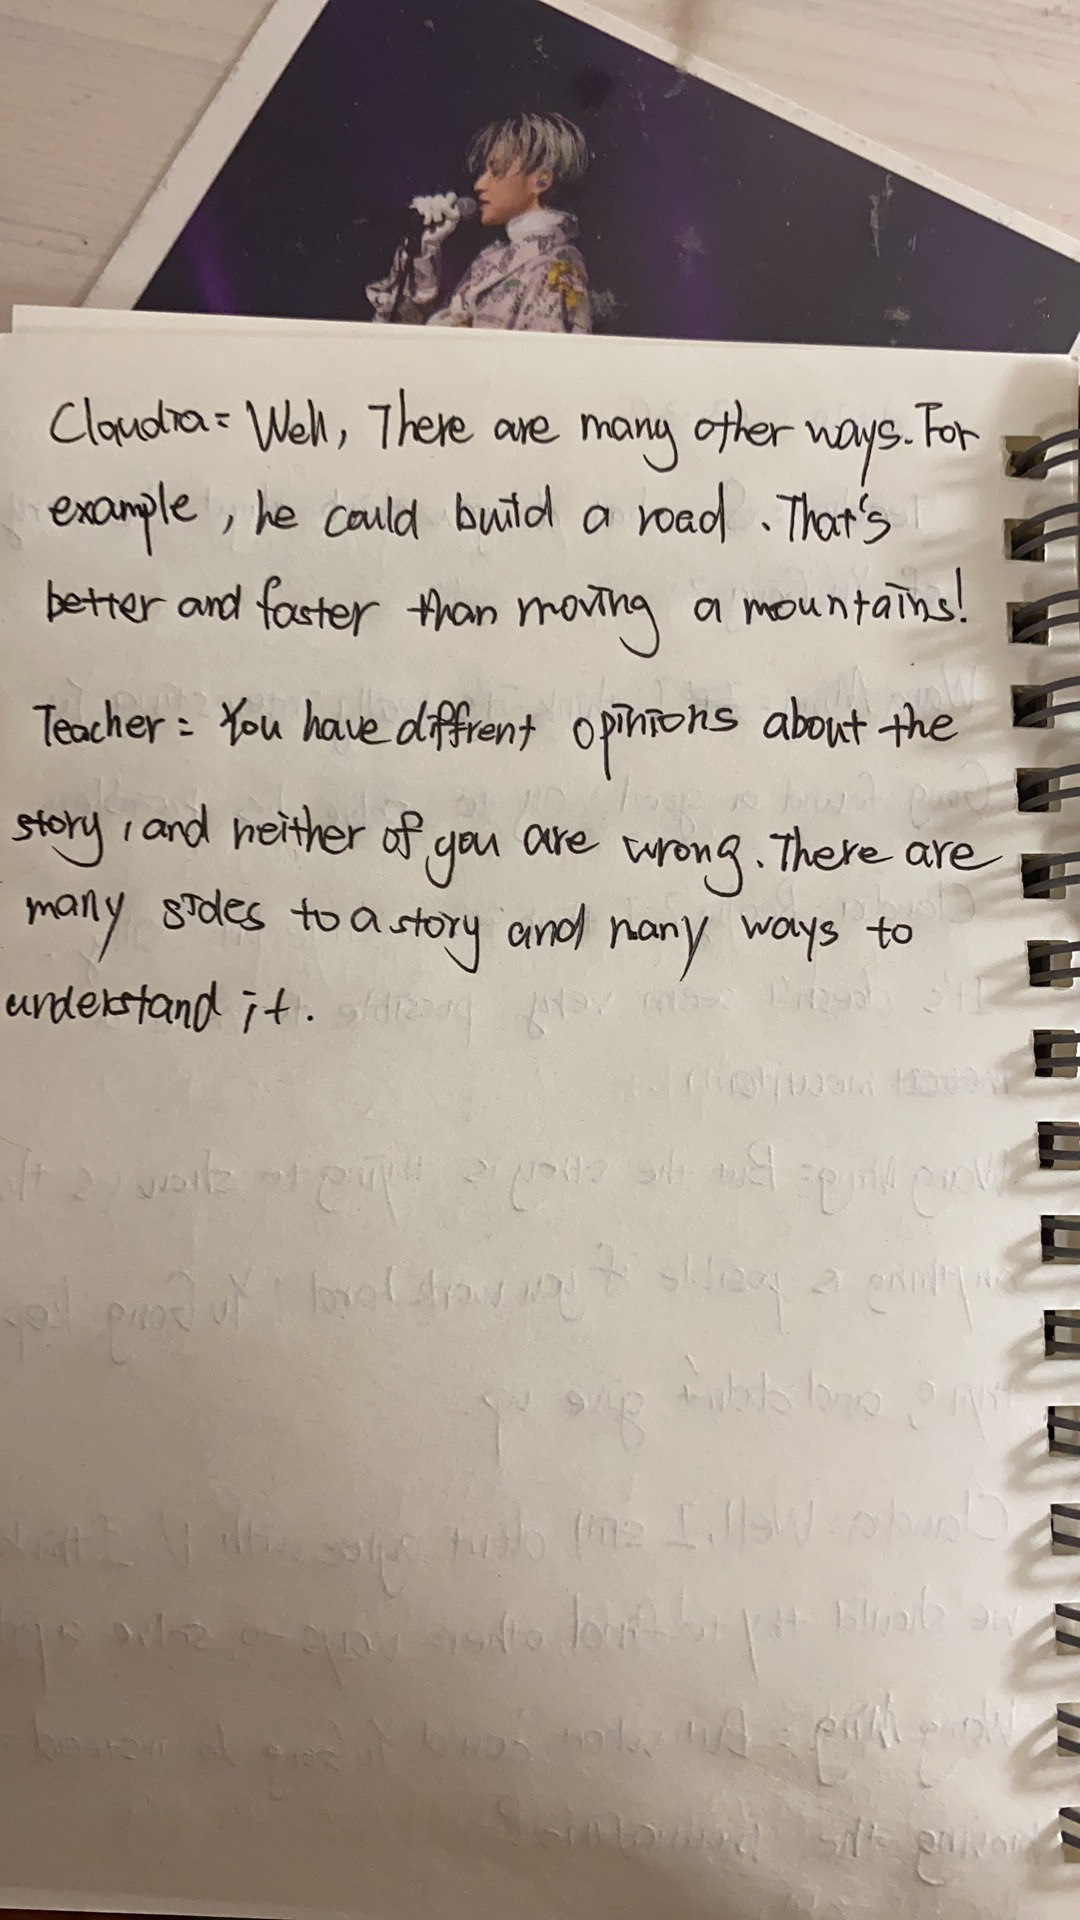 Claudia= Well, There are many other ways. For
example, he could build a road. That's
better and faster than moving a mountains!
Teacher= You have diffrent opinions about the
story, and neither of you are wrong. There are
many sides to a story and many ways to
understand it.